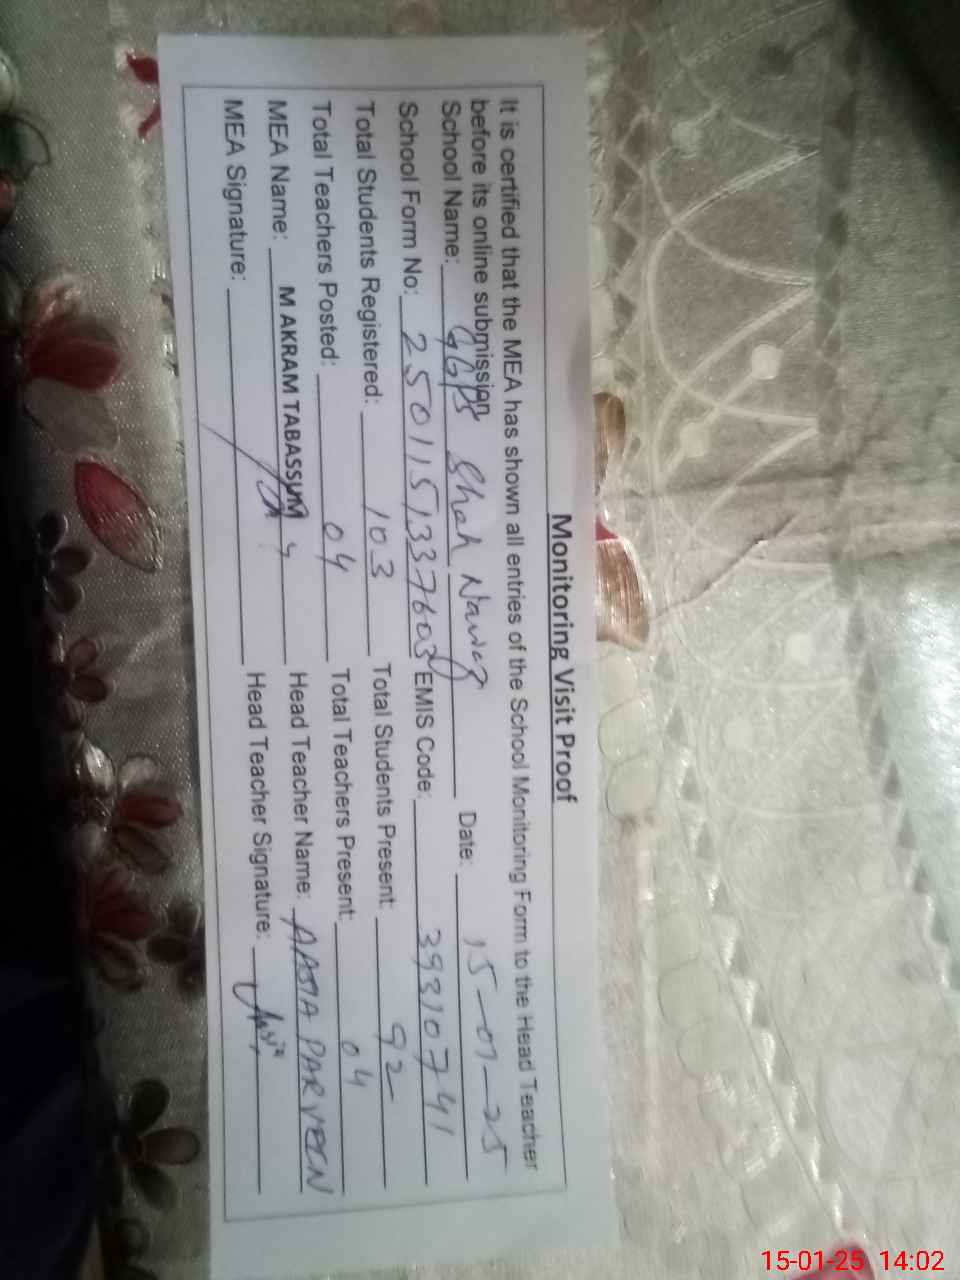 Monitoring Visit Proof
It is certified that the MEA has shown all entries of the School Monitoring Form to the Head Teacher
before its online submission
School Name: GGPS Shah Nawaz Date: 15-01-25
School Form No: 2501151337603 EMIS Code: 39310741
Total Students Registered: 103 Total Students Present: 92
Total Teachers Posted: 04 Total Teachers Present: 04
MEA Name: M AKRAM TABASSUM Head Teacher Name: AASIA PARVEEN
MEA Signature: Head Teacher Signature: Aasia
15-01-25 14:02